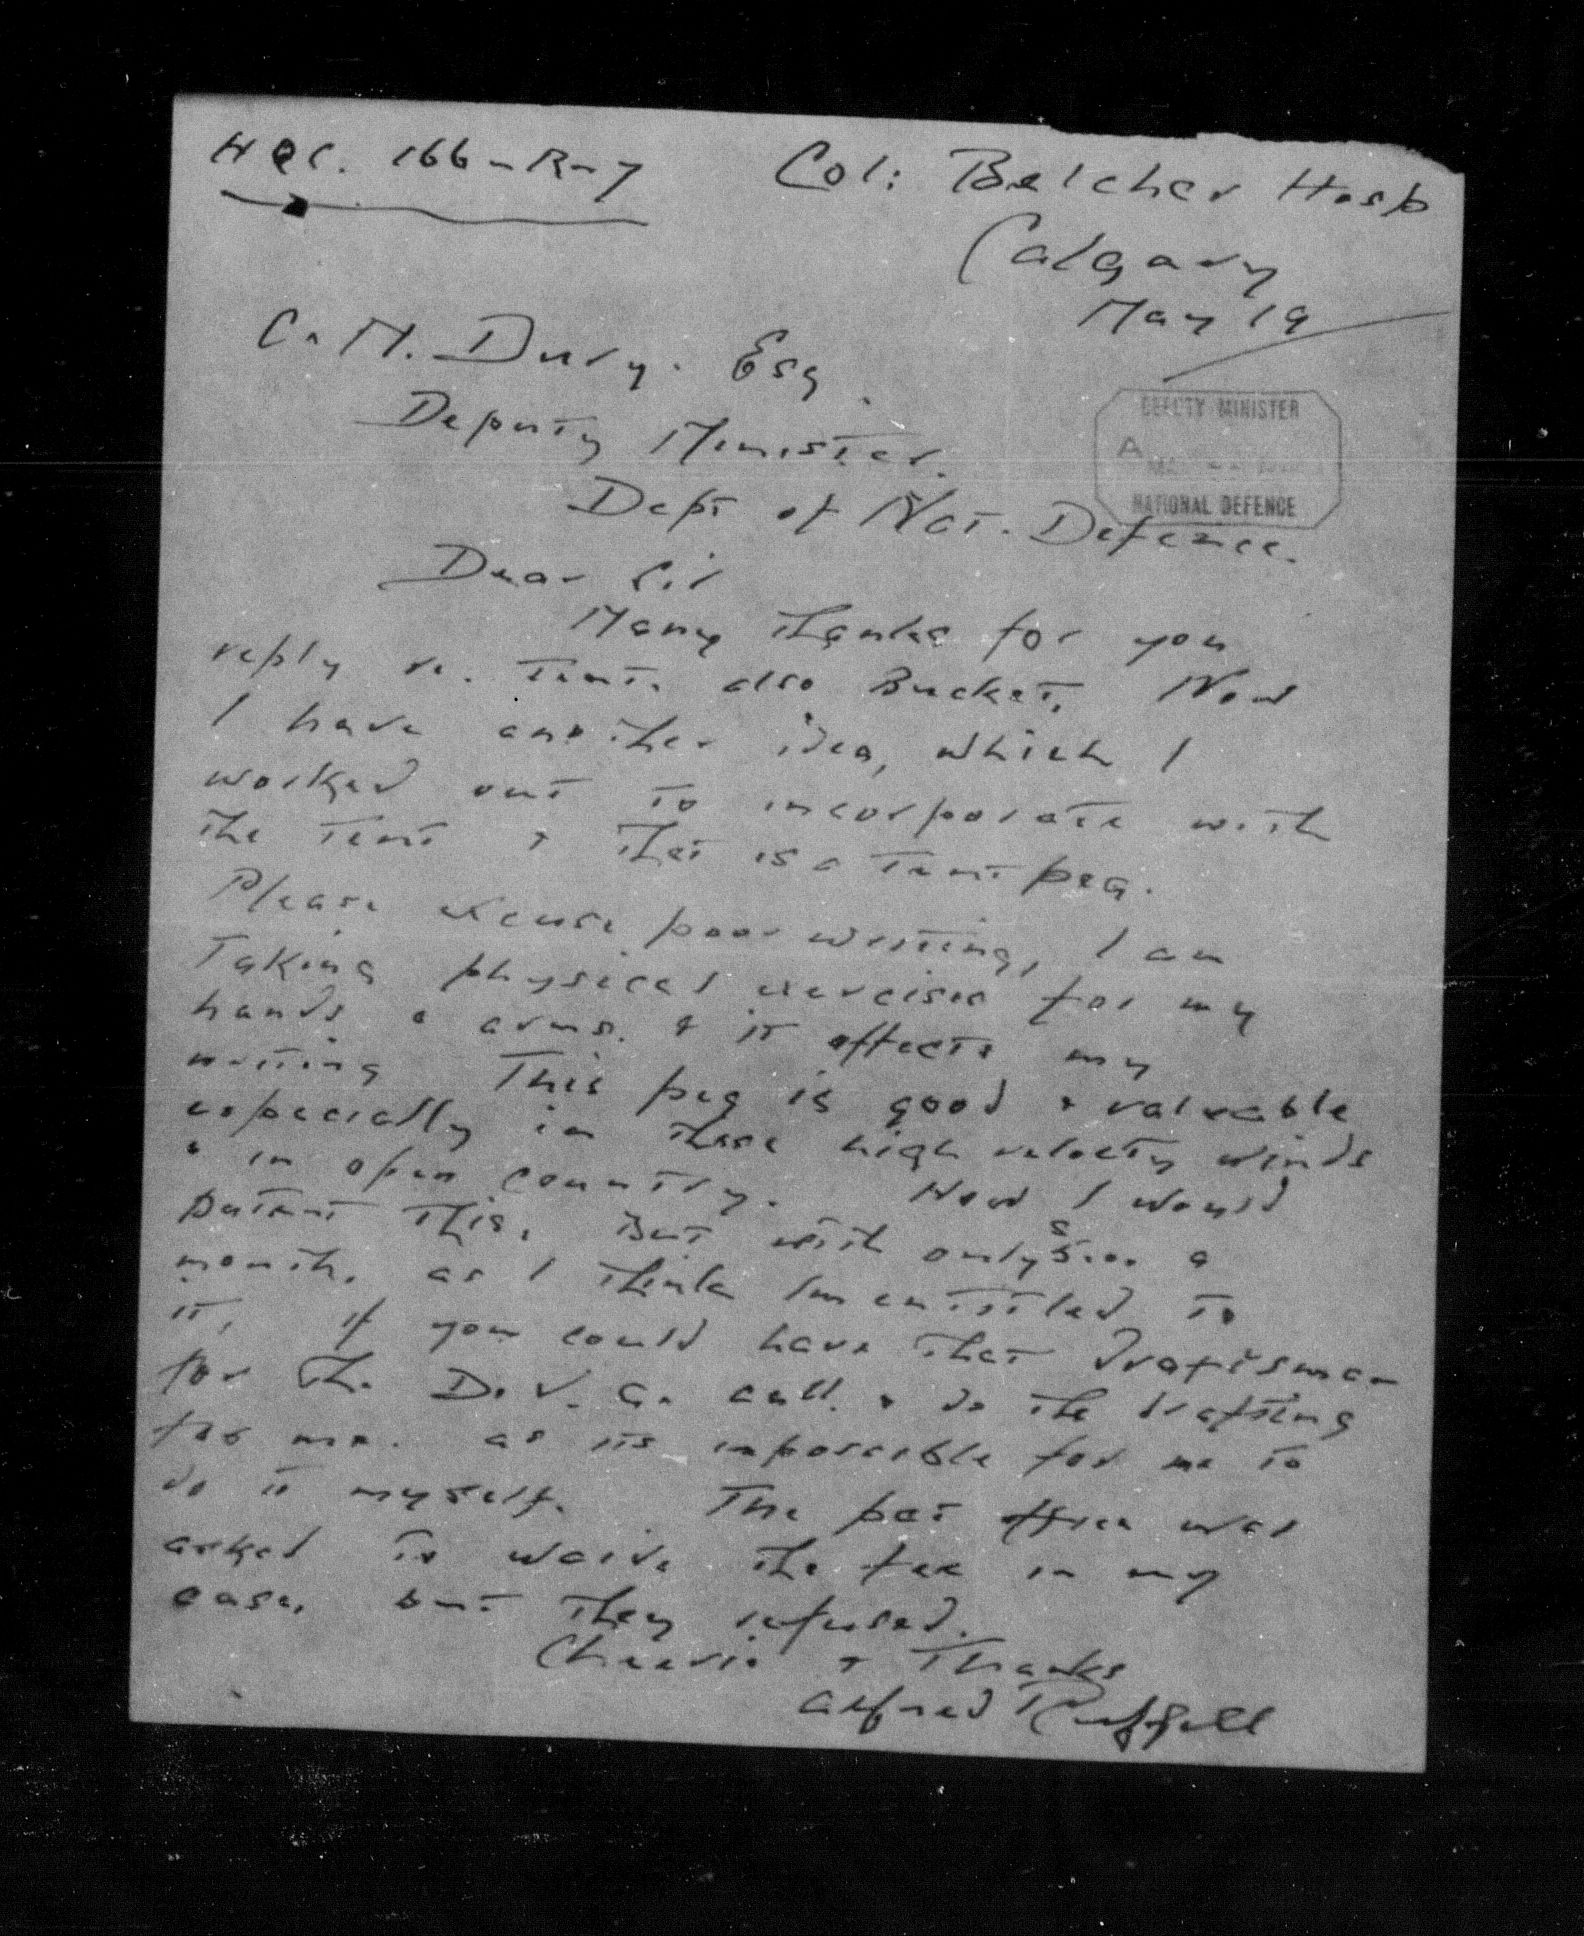 HQC. 166-R-7
Col: Belcher Hosp
Calgary
May 19
C. M. Drury. Esq.
DEPUTY MINISTER
A
NATIONAL DEFENCE
Deputy Minister.
Dept of Nat. Defence.
Dear Sir
Many thanks for you
reply re. Tent. also Bucket. Now
I have another idea, which I
worked out to incorporate with
the Tent & that is a Tent peg.
Please excuse poor writing, I am
Taking physical exercises for my
hands & arms. & it effects my
writing This peg is good & valuable
especially in these high velocity winds
& in open country. Now I would
patent this, But with only a
month. as I think Im entitled to
it, if you could have that draftsman
for The D.V.A. call. & do the drafting
for me. as its impossible for me to
do it myself. The pat office was
asked to waive the fee in my
case, but they refused.
Cheerio & Thanks
Alfred